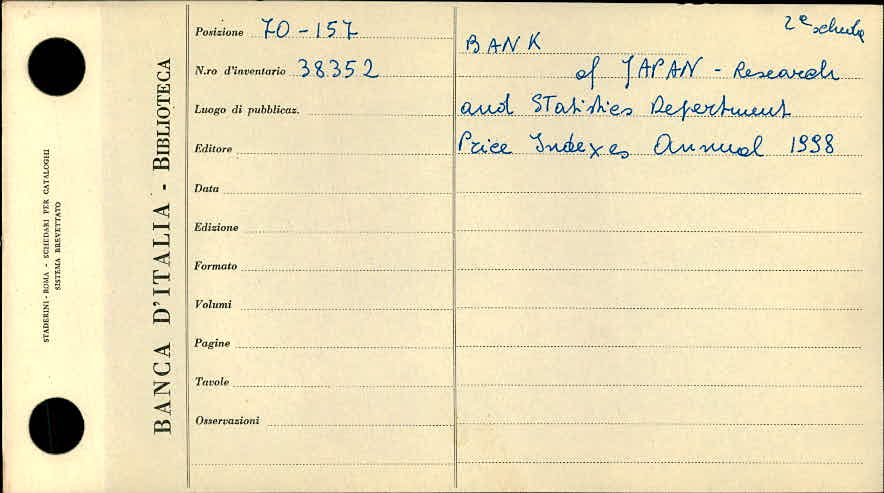 STADERINI - ROMA - SCHEDARI PER CATALOGHI
SISTEMA BREVETTATO
BANCA D'ITALIA - BIBLIOTECA
Posizione 70-157
N.ro d'inventario 38352
Luogo di pubblicaz.
Editore
Data
Edizione
Formato
Volumi
Pagine
Tavole
Osservazioni
2ª scheda
BANK
of JAPAN - Research
and STatistics Department
Price Indexes Annual 1998